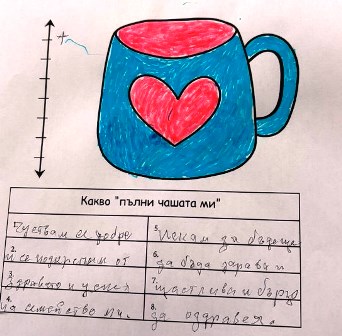 +
Какво "пълни чашата ми"
Чуствам се добре
5. Искам за бъдеще
2. и се подкрепям от
6. да бъда здрава и
3. здравето и успех
7. щастлива и бързо
4. на семейство ми.
8. да оздравея.